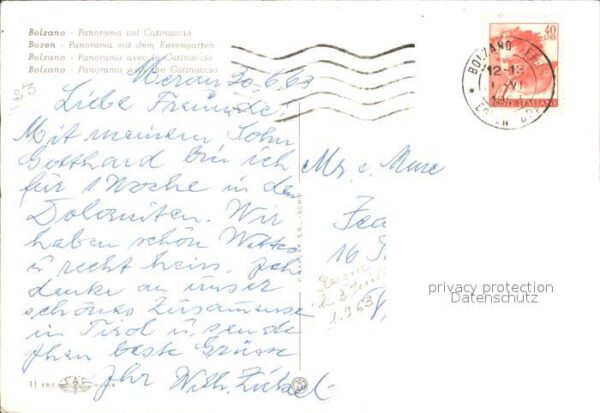 Bolzano - Panorama col Catinaccio
Bozen - Panorama mit dem Rosengarten
Bolzano - Panorama avec le Catinaccio
Bolzano - Panorama with the Catinaccio
40
LIRE
POSTE ITALIANE
BOLZANO
12-13
Meran 30.6.63
Liebe Freunde!
Mit meinem Sohn
Gotthard bin ich
für 1 Woche in den
Dolomiten. Wir
haben schön Wetter
u recht heiss. Ich
denke an unser
schönes Zusammensein
in Tirol u. sende
Ihnen beste Grüsse
Ihr Wilh.
Mr. e. Mme
16
1963
privacy protection
Datenschutz
11